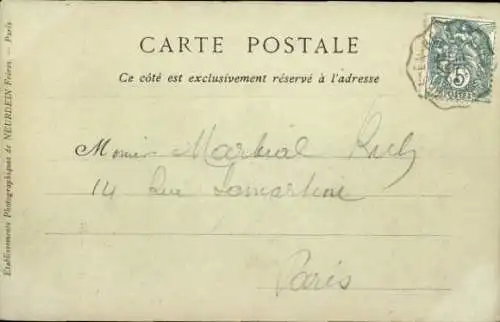 CARTE POSTALE
Ce côté est exclusivement réservé à l'adresse
Monsieur Martial
14 Rue Lamartine
Paris
Établissements Photographiques de NEURDEIN Frères. — Paris
5